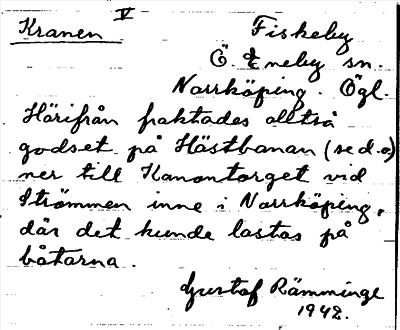 Kranen V Fiskeby
Ö. Eneby sn.
Norrköping. Ögl.
Härifrån fraktades alltså
godset på Hästbanan (se d.o)
ner till Kanontorget vid
Strömmen inne i Norrköping,
där det kunde lastas på
båtarna.
Gustaf Rämminge
1942.